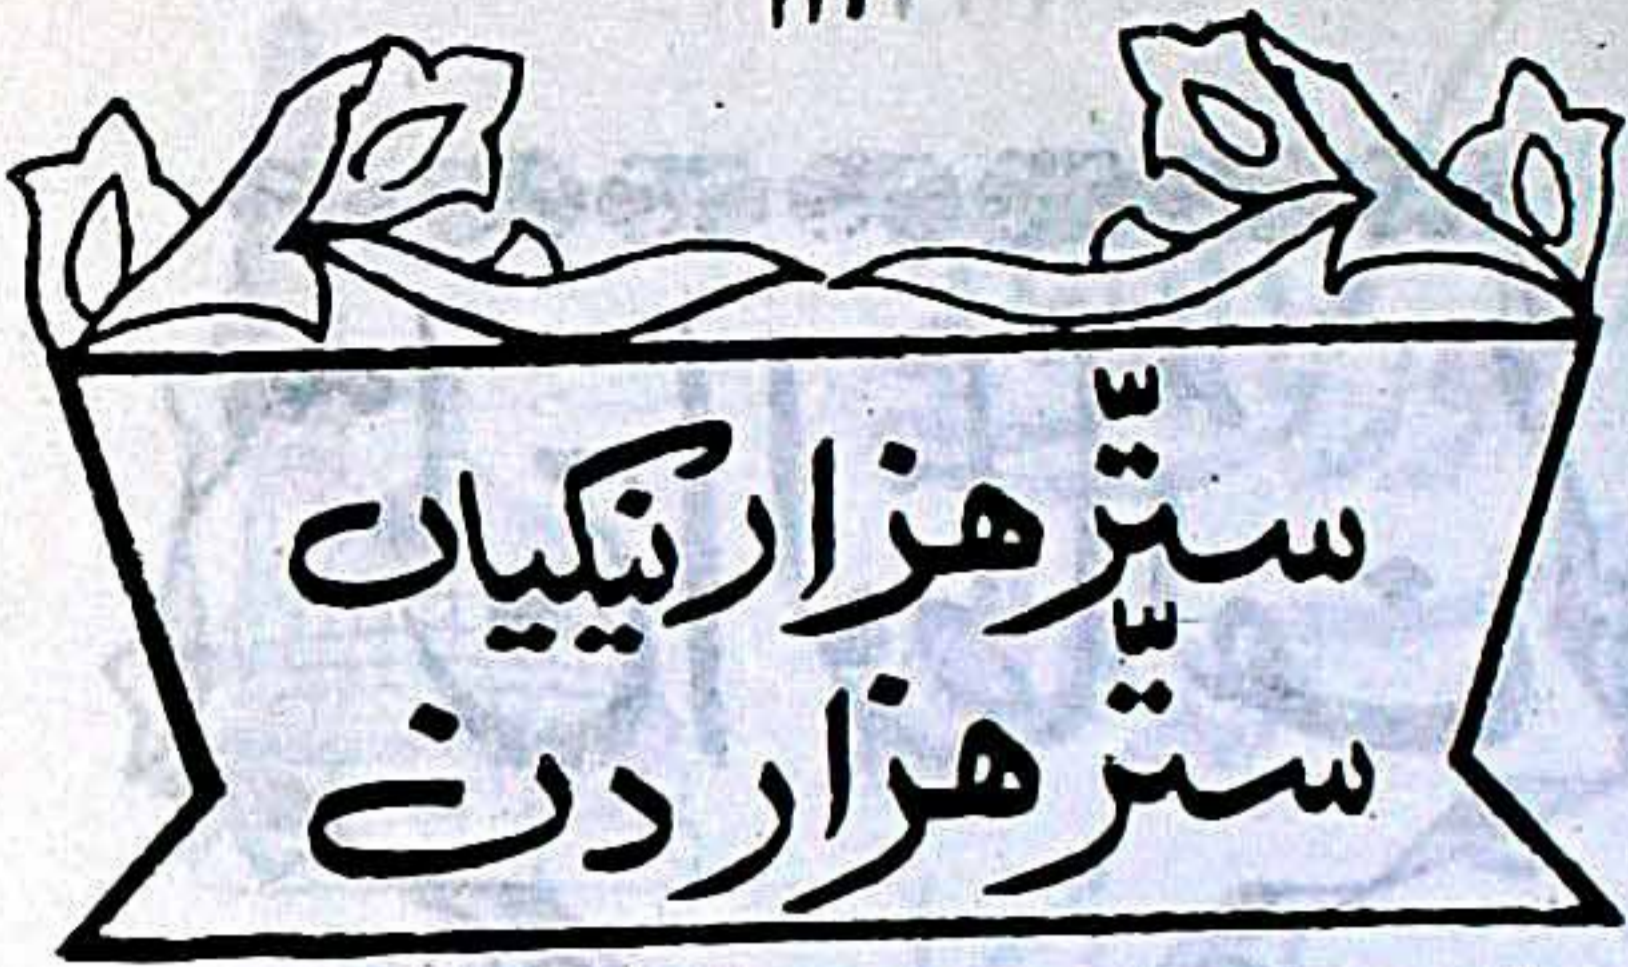 ستّر هزار نیکیاں
ستّر هزار دن